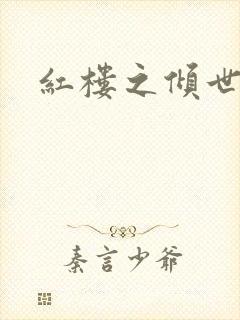 紅樓之傾世
秦言少爺